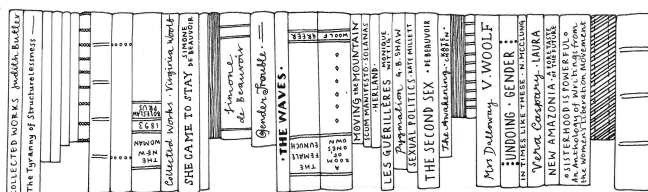 COLLECTED WORKS Judith Butler
The Tyranny of Structurelessness
BOLESLAW
PRUS
1893
THE
NEW
WOMAN
Collected Works · Virginia Woolf
SHE CAME TO STAY · SIMONE
DE BEAUVOIR
Simone
de Beauvoir
Gender Trouble
· THE WAVES ·
GREER
THE
FEMALE
EUNUCH
WOOLF
A
ROOM
OF
ONES
OWN
MOVING the MOUNTAIN
SCUM MANIFESTO · SOLANAS
HERLAND
LES GUÉRILLÈRES · MONIQUE
WITTIG
Pygmalion G.B. SHAW
SEXUAL POLITICS · KATE MILLETT
THE SECOND SEX · DE BEAUVOIR
The Awakening
Mrs Dalloway V. WOOLF
UNDOING · GENDER
IN TIMES LIKE THESE · N. McCLUNG
Vera Caspary · LAURA
NEW AMAZONIA · A FORETASTE
OF THE FUTURE
SISTERHOOD IS POWERFUL
An Anthology of Writings from
the Women's Liberation Movement